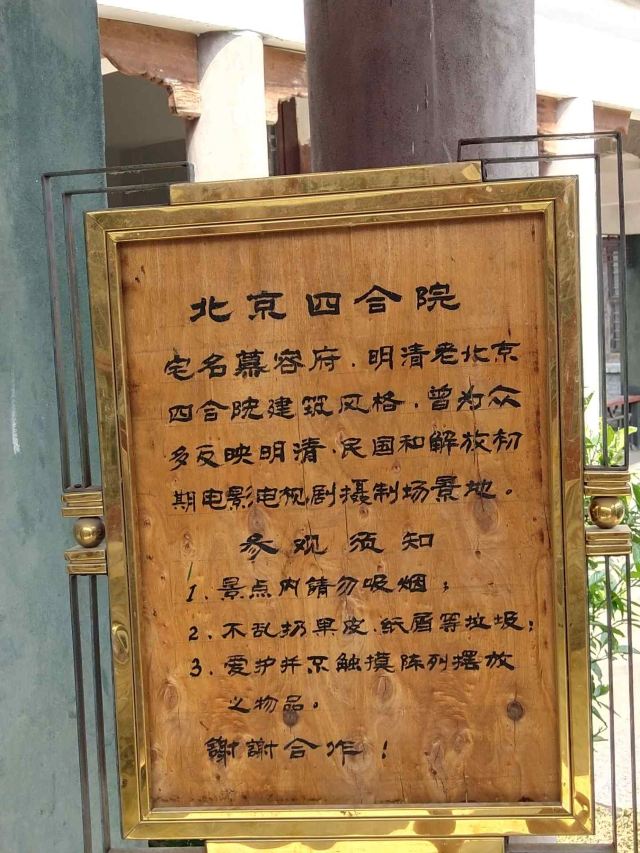 北京四合院
宅名慕容府．明清老北京
四合院建筑风格．曾为众
多反映明清、民国和解放初
期电影电视剧摄制场景地。
参观须知
1．景点内請勿吸烟；
2．不乱扔果皮、纸屑等垃圾；
3．爱护并不触摸陈列摆放
之物品。
謝謝合作！